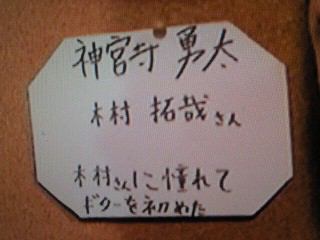 神宮寺 勇太
木村 拓哉さん
木村さんに憧れて
ギターを初めた